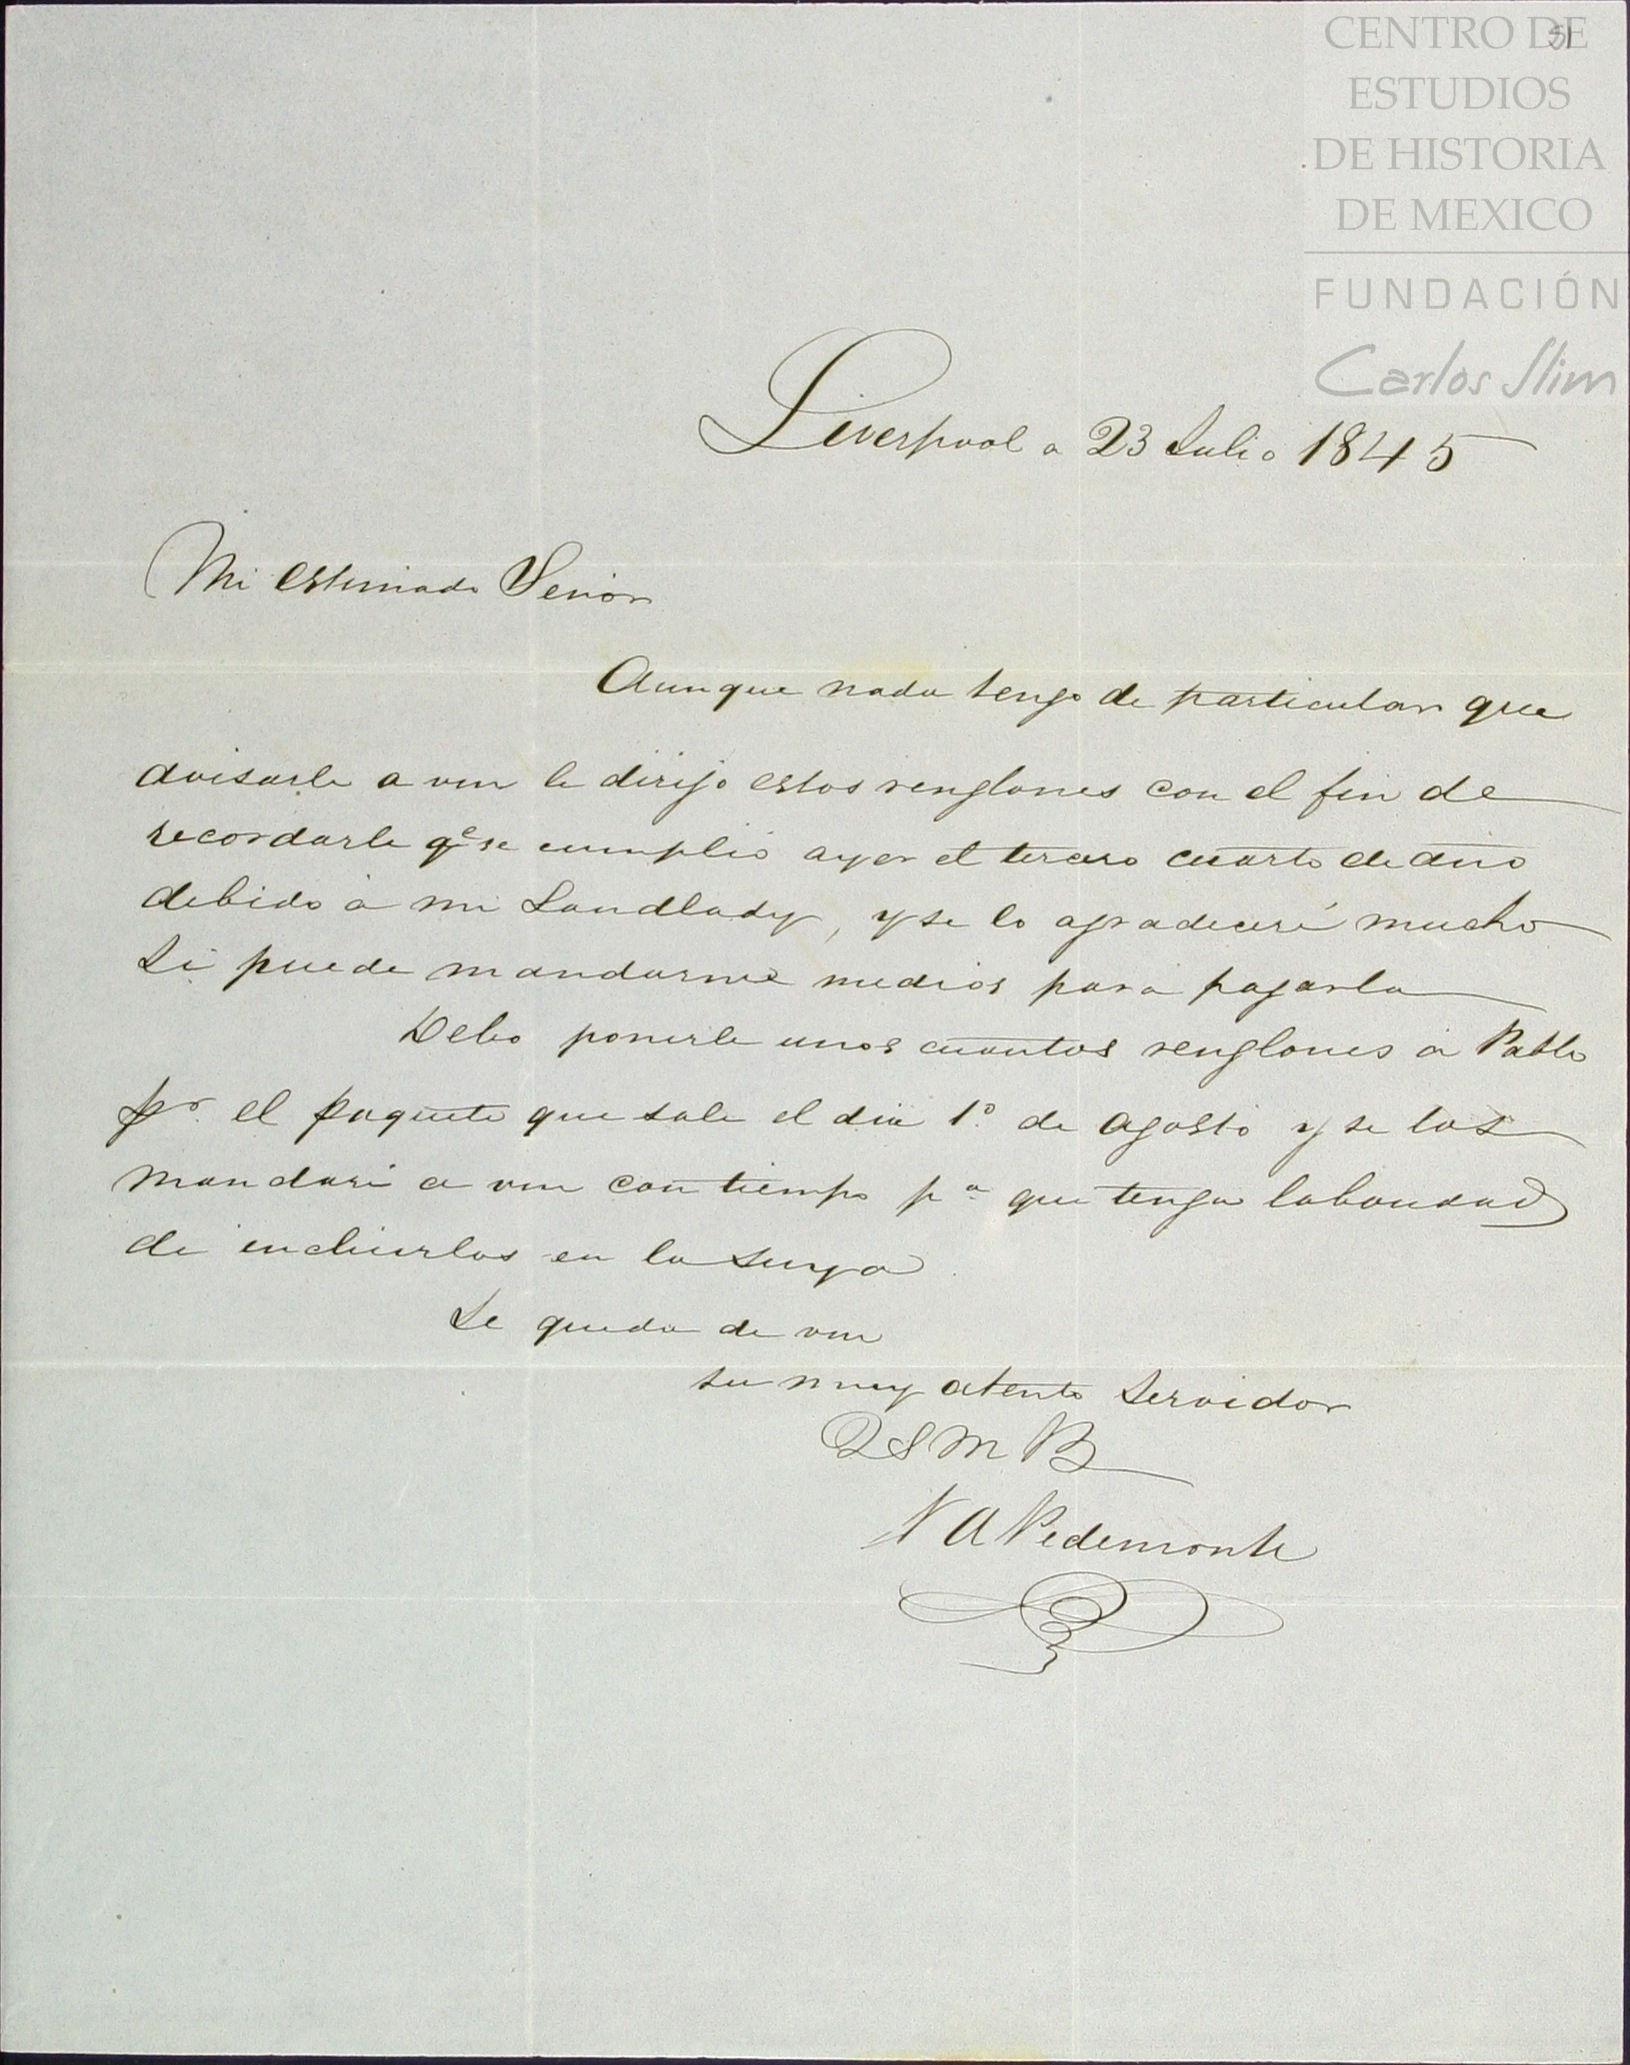 51
CENTRO DE
ESTUDIOS
DE HISTORIA
DE MEXICO
FUNDACIÓN
Carlos Slim
Liverpool a 23 Julio 1845
Mi estimado Senior
Aunque nada tengo de particular que
avisarle a vm le dirijo estos renglones con el fin de
recordarle qe se cumplió ayer el tercero cuarto de año
debido á mi Landlady, y se lo agradeceré mucho
Si puede mandarme medios para pagarla
Debo ponerle unos cuantos renglones á Pablo
pr. el paquete que sale el dia 1º de Agosto y se los
mandaré a vm con tiempo pa que tenga la bondad
de incluirlos en la suya.
Se queda de vm
su muy atento Servidor
QSMB
N A Pedemonte